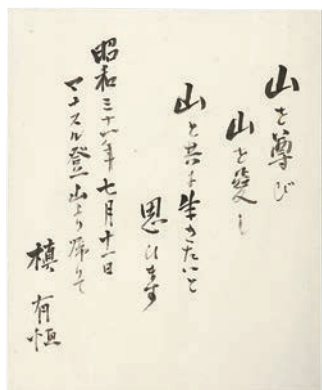 山を尊び
山を愛し
山と共に生きたいと
思います
昭和三十一年七月十一日
マナスル登山より帰りて
槇有恒